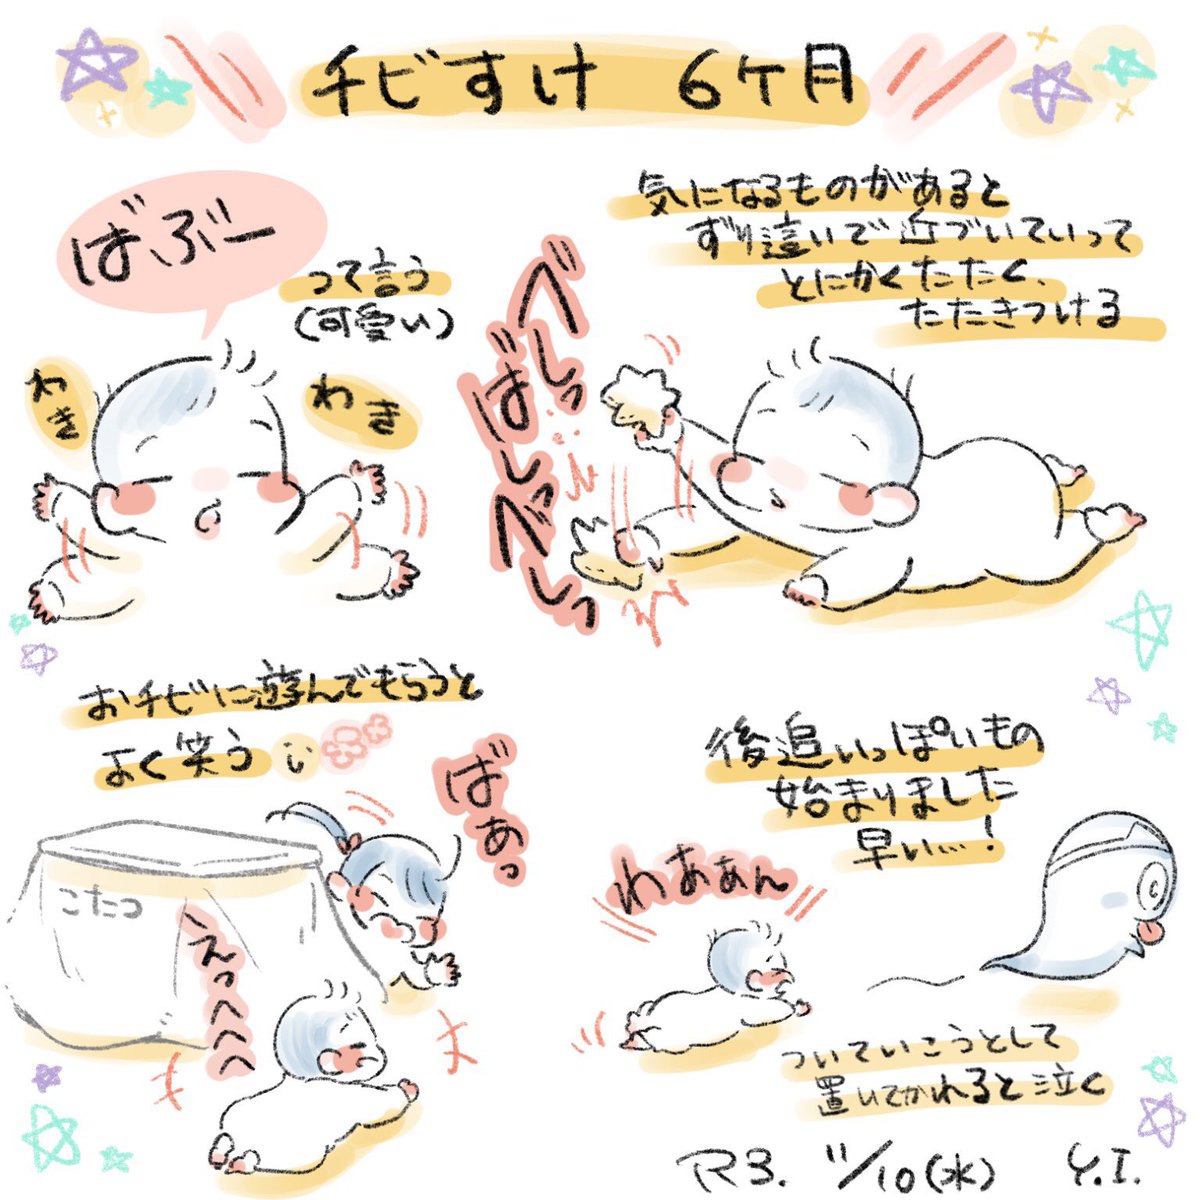 チビすけ 6ケ月
ばぶー
って言う
(可愛い)
わき
わき
気になるものがあると
ずり這いで近づいていって
とにかくたたく、
たたきつける
べしっ
ばしっ
べしっ
おチビに遊んでもらうと
よく笑う
ばあっ
こたつ
えっへへへ
後追いっぽいもの
始まりました
早い…!
わあぁん
ついていこうとして
置いてかれると泣く
R3. 11/10(水) Y.I.